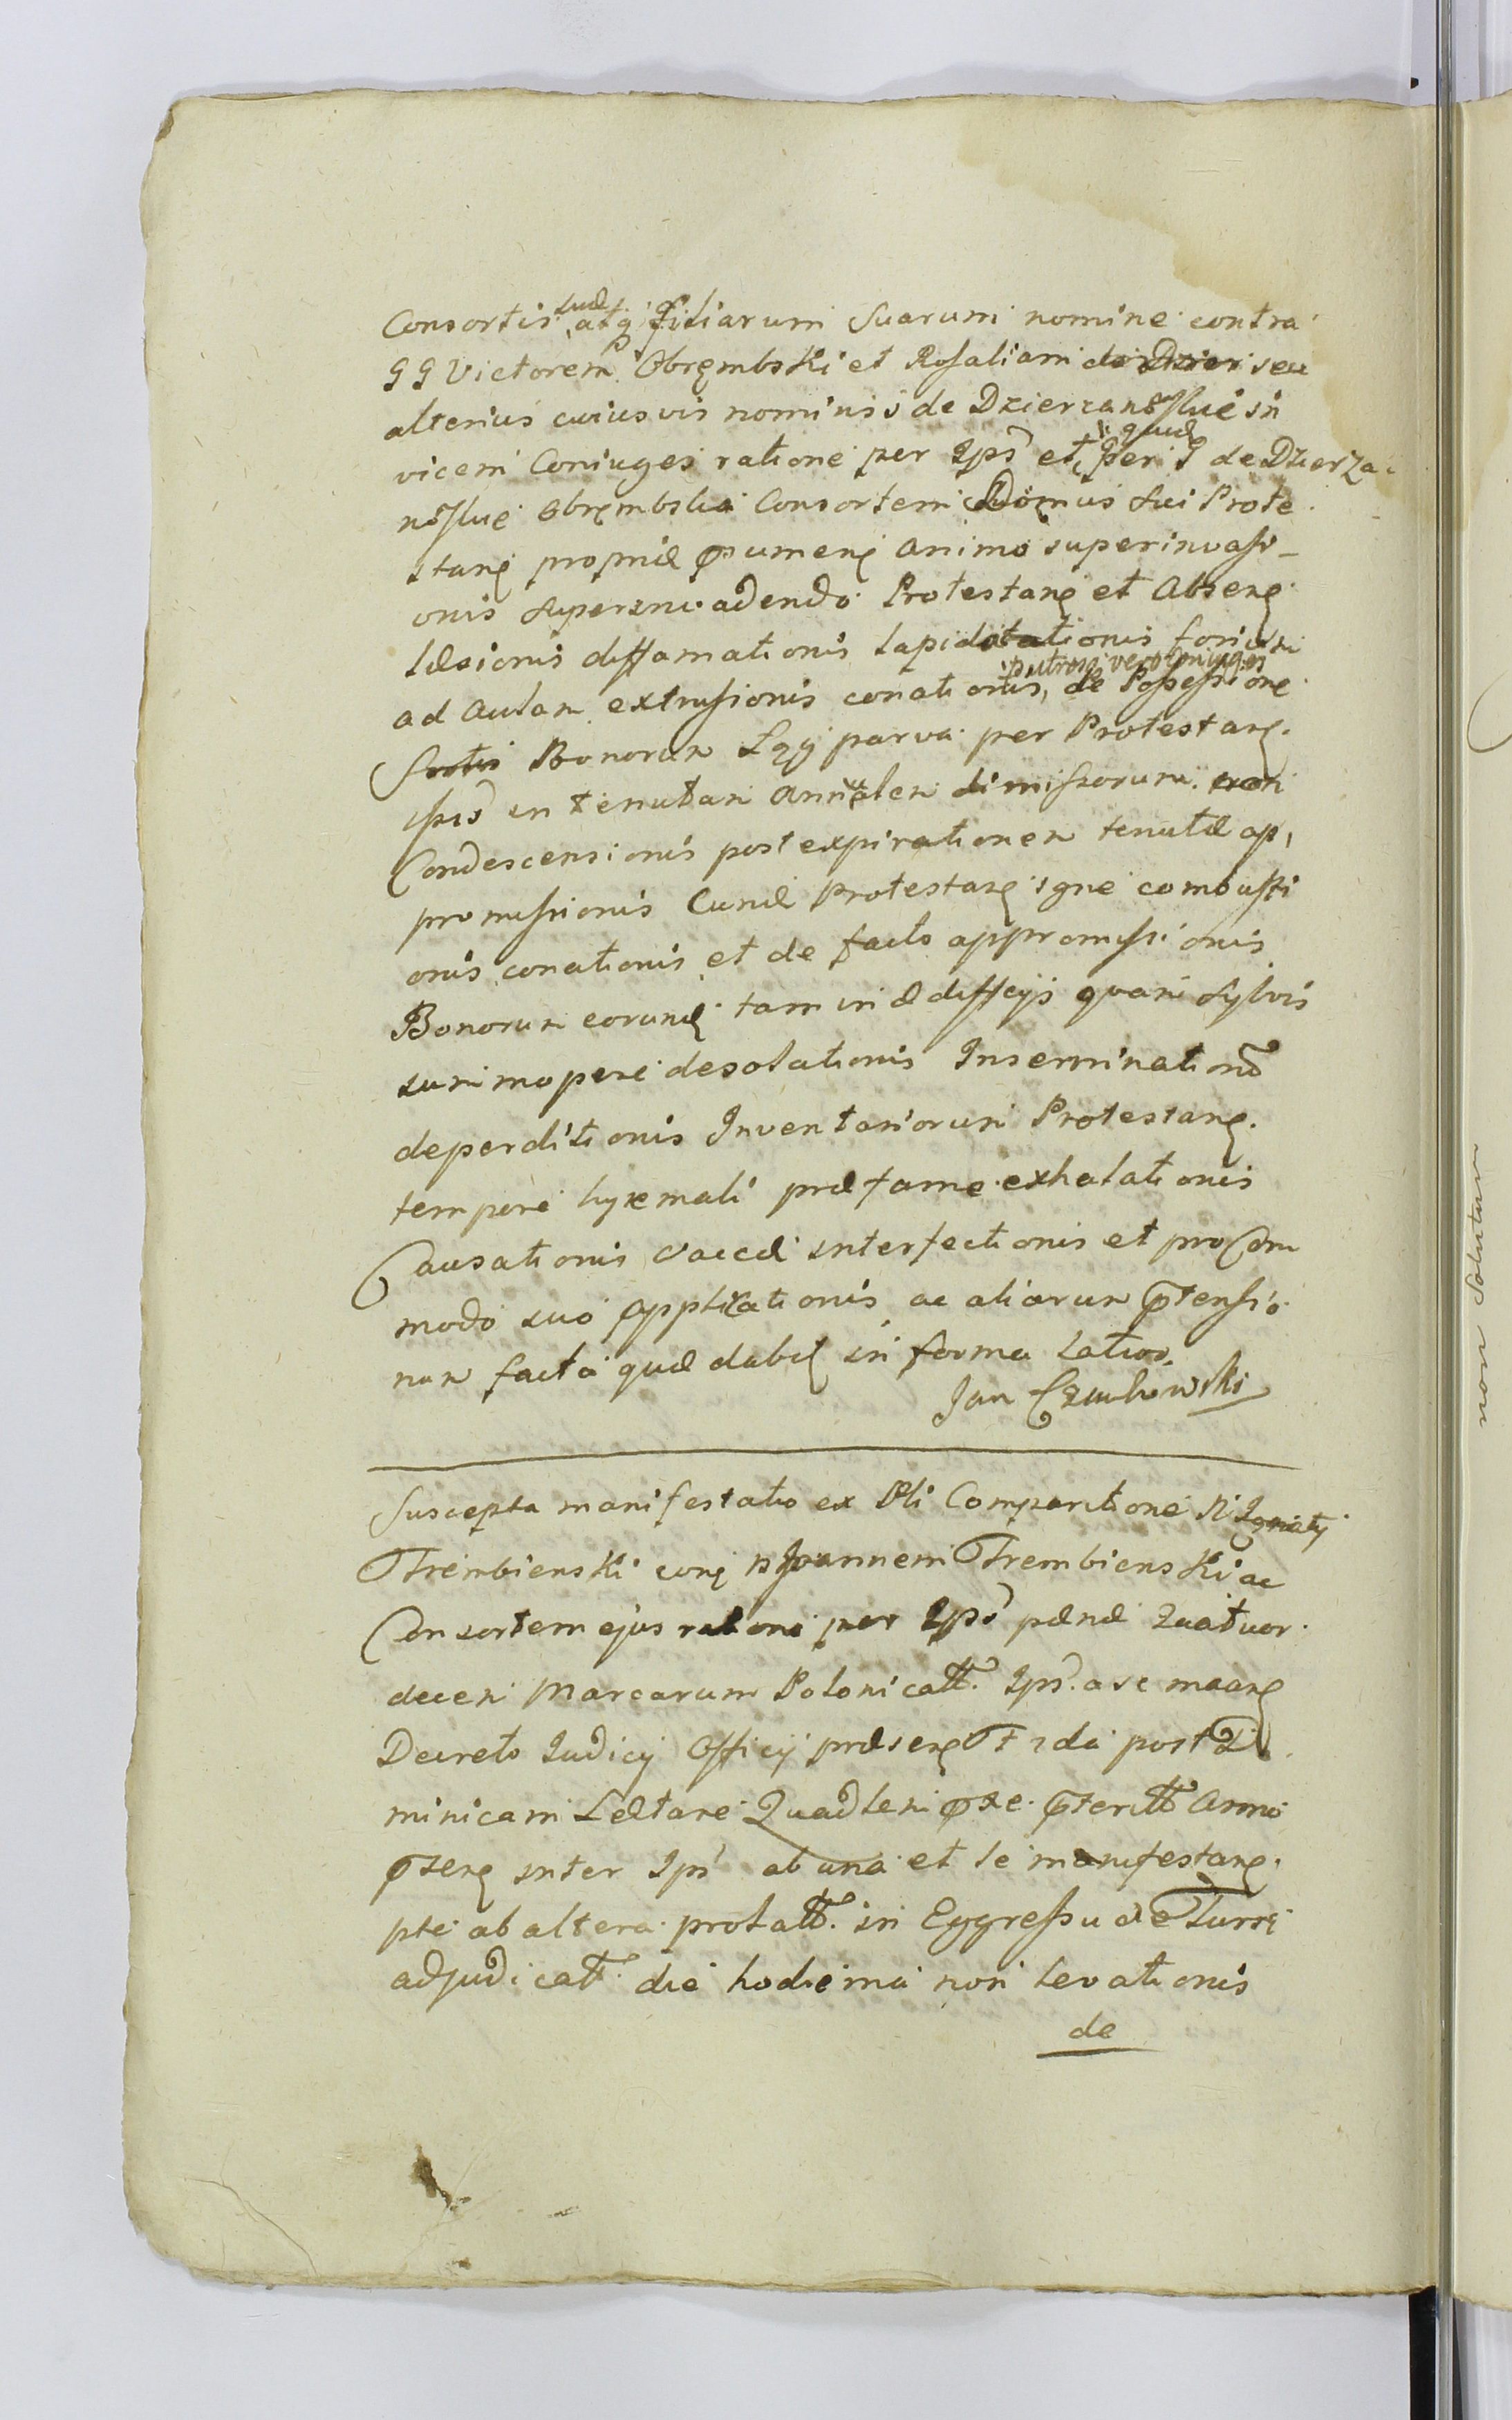 Consortis suæ atq filiarum suarum nomine contra
GG Victorem Obrembski et Rosaliam de Dzier seu
alterius cuiusvis nominis de Dzierzanoskie in
vicem Coniuges ratione per Ips et quid per G de Dzierza
noskie Obrembska Consortem Domus sui Prote
stan propriæ animo superinvasi_
onis superinvadendo Protestan et Absen
læsionis diffamationis lapidatationis
ad Aulam extrusionis conationis, p utrosq vero Coniuges de Possessione
Sortis Bonorum Łęgi parva per Protestan
Ips in tenutam Annualem dimissorum non
Condescensionis post expirationem tenutæ ap,
promissionis Protestan igne combusti
onis conationis et de facto appromissionis
Bonorum eorund tam in ædifficijs quam sylvis
summopere desolationis Inseminationo
deperditionis Inventariorum Protestan
tempore hyemali præ fame exhalationis
Causationis vaccæ interfectionis et pro Com
modo suo applicationis ac aliarum ptensio
num facta quæ dabit in forma latior.
Jan Czuchowski
Suscepta manifestatio ex Pti Comparitione N Ignatij
Trembienski con N Joannem Trembienski ac
Consortem ejus ratione per Ips pænæ quatuor
decem Marcarum Polonicatt. Ips. a se maan
Decreto Judicij Officij præsen F 2da post Do
minicam Lætare Quadlem pxe pterittæ Anno
psen inter Ips ab una et se manifestan
pte ab altera prolatt. in Eggressu de Turri
adjudicatt die hodierna non levationis
de
non Solutum